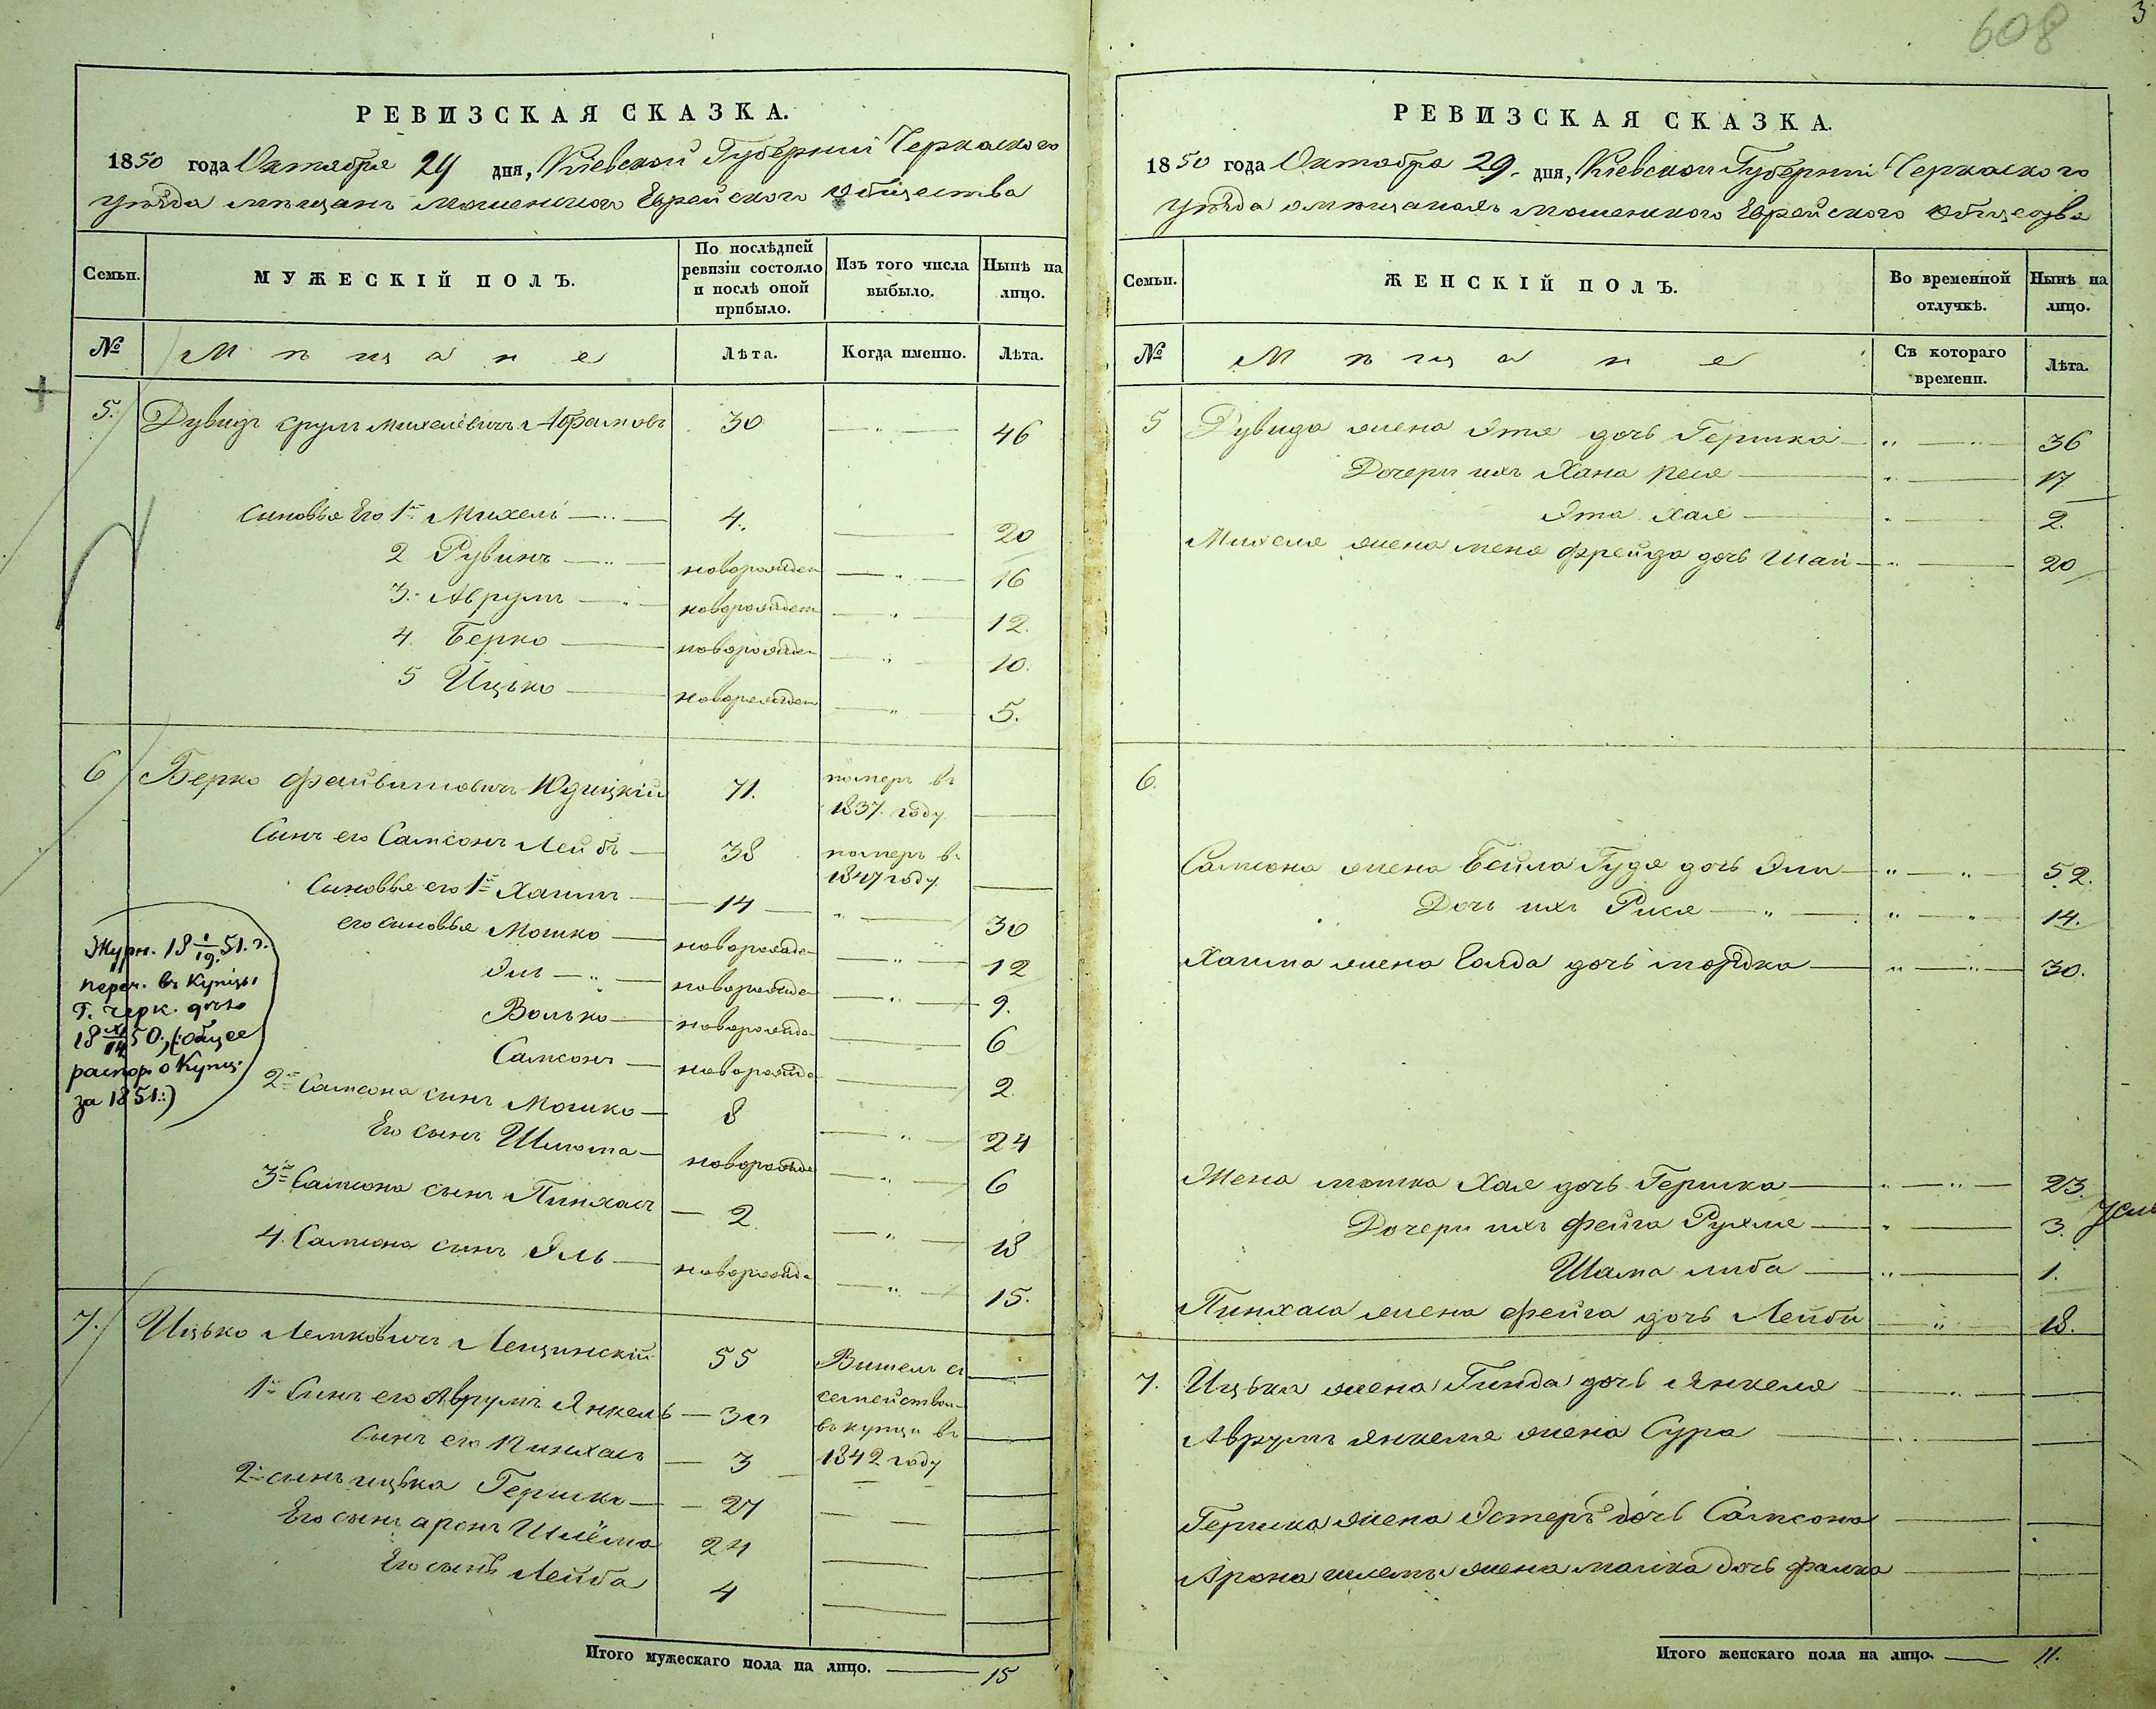 608
3
РЕВИЗСКАЯ СКАЗКА.
1850 года Октября 29 дня, Кіевской Губерніи Черкаского
уѣзда мѣщанъ мошенского Еврейского общества
Семьи.
МУЖЕСКІЙ ПОЛЪ.
По послѣдней ревизіи состояло и послѣ оной прибыло.
Изъ того числа выбыло.
Нынѣ на лицо.
№
Мѣщане
Лѣта.
Когда именно.
Лѣта.
5. Дувидъ срулъ михелевичъ Абрамовъ 30 46
сыновья Его 1й Михель 4. 20
2 Рувинъ новорожден 16
3. Аврумъ новорожден 12.
4. Берко новорожден 10.
5 Ицько новорожден 5.
6 Берко файвишовичъ Юдицкій 71. померъ въ 1837. году
Сынъ его Самсонъ Лейбъ 38 померъ въ 1847 году
Сыновья его 1й Хаимъ 14 30
его сыновья Мошко новорожде 12
Эли новорожде 9.
Волько новорожде 6
Самсонъ новорожде 2
2й Самсона сынъ Мошко 8 24
Его сынъ Шлиома новорожде 6
3й Самсона сынъ Пинхасъ 2 18
4. Самсона сынъ Эль новорожде 15.
Журн. 18 1/19 51. г.
переч. въ Купцы
Г. Черк.
18 50., (: общее
распор. о Купц.
за 1851.:)
7. Ицько Лемковичъ Лещинскій 55 Вышелъ съ
1й Сынъ его Аврумъ Янкель 30 семейством
въ купцы въ
Сынъ его Пинхасъ 3 1842 году
2й сынъ ицька Гершко 27
Его сынъ аронъ Шлёма 24
Его сынъ Лейба 4
Итого мужескаго пола на лицо. 15
РЕВИЗСКАЯ СКАЗКА.
1850 года Октября 29. дня, Кіевской Губерніи Черкаского
уѣзда омѣщанахъ мошенского Еврейского общества
Семьи.
ЖЕНСКІЙ ПОЛЪ.
Во временной отлучкѣ.
Нынѣ на лицо.
№
Мѣщане
Съ котораго времени.
Лѣта.
5 Дувида жена Этя дочь Гершка 36
Дочери ихъ Хана реся 17
Эта Хая 2.
Михеля жена меня фрейда дочь Шаи 20
6.
Самсона жена Бейла Гудя дочь Эли 52.
Дочь ихъ Рися 14.
Хаима жена Голда дочь мордка 30.
Жена мошка Хая дочь Гершка 23.
Дочери ихъ фейга Рухля 3.
Шама либа 1.
Пинхаса жена фейга дочь Лейби 18.
7. Ицька жена Гинда дочь Янкеля
Аврумъ янкеля жена Сура
Гершка жена Эстеръ дочь Самсона
Арона шлемы жена малка дочь фалка
Итого женскаго пола на лицо. 11.